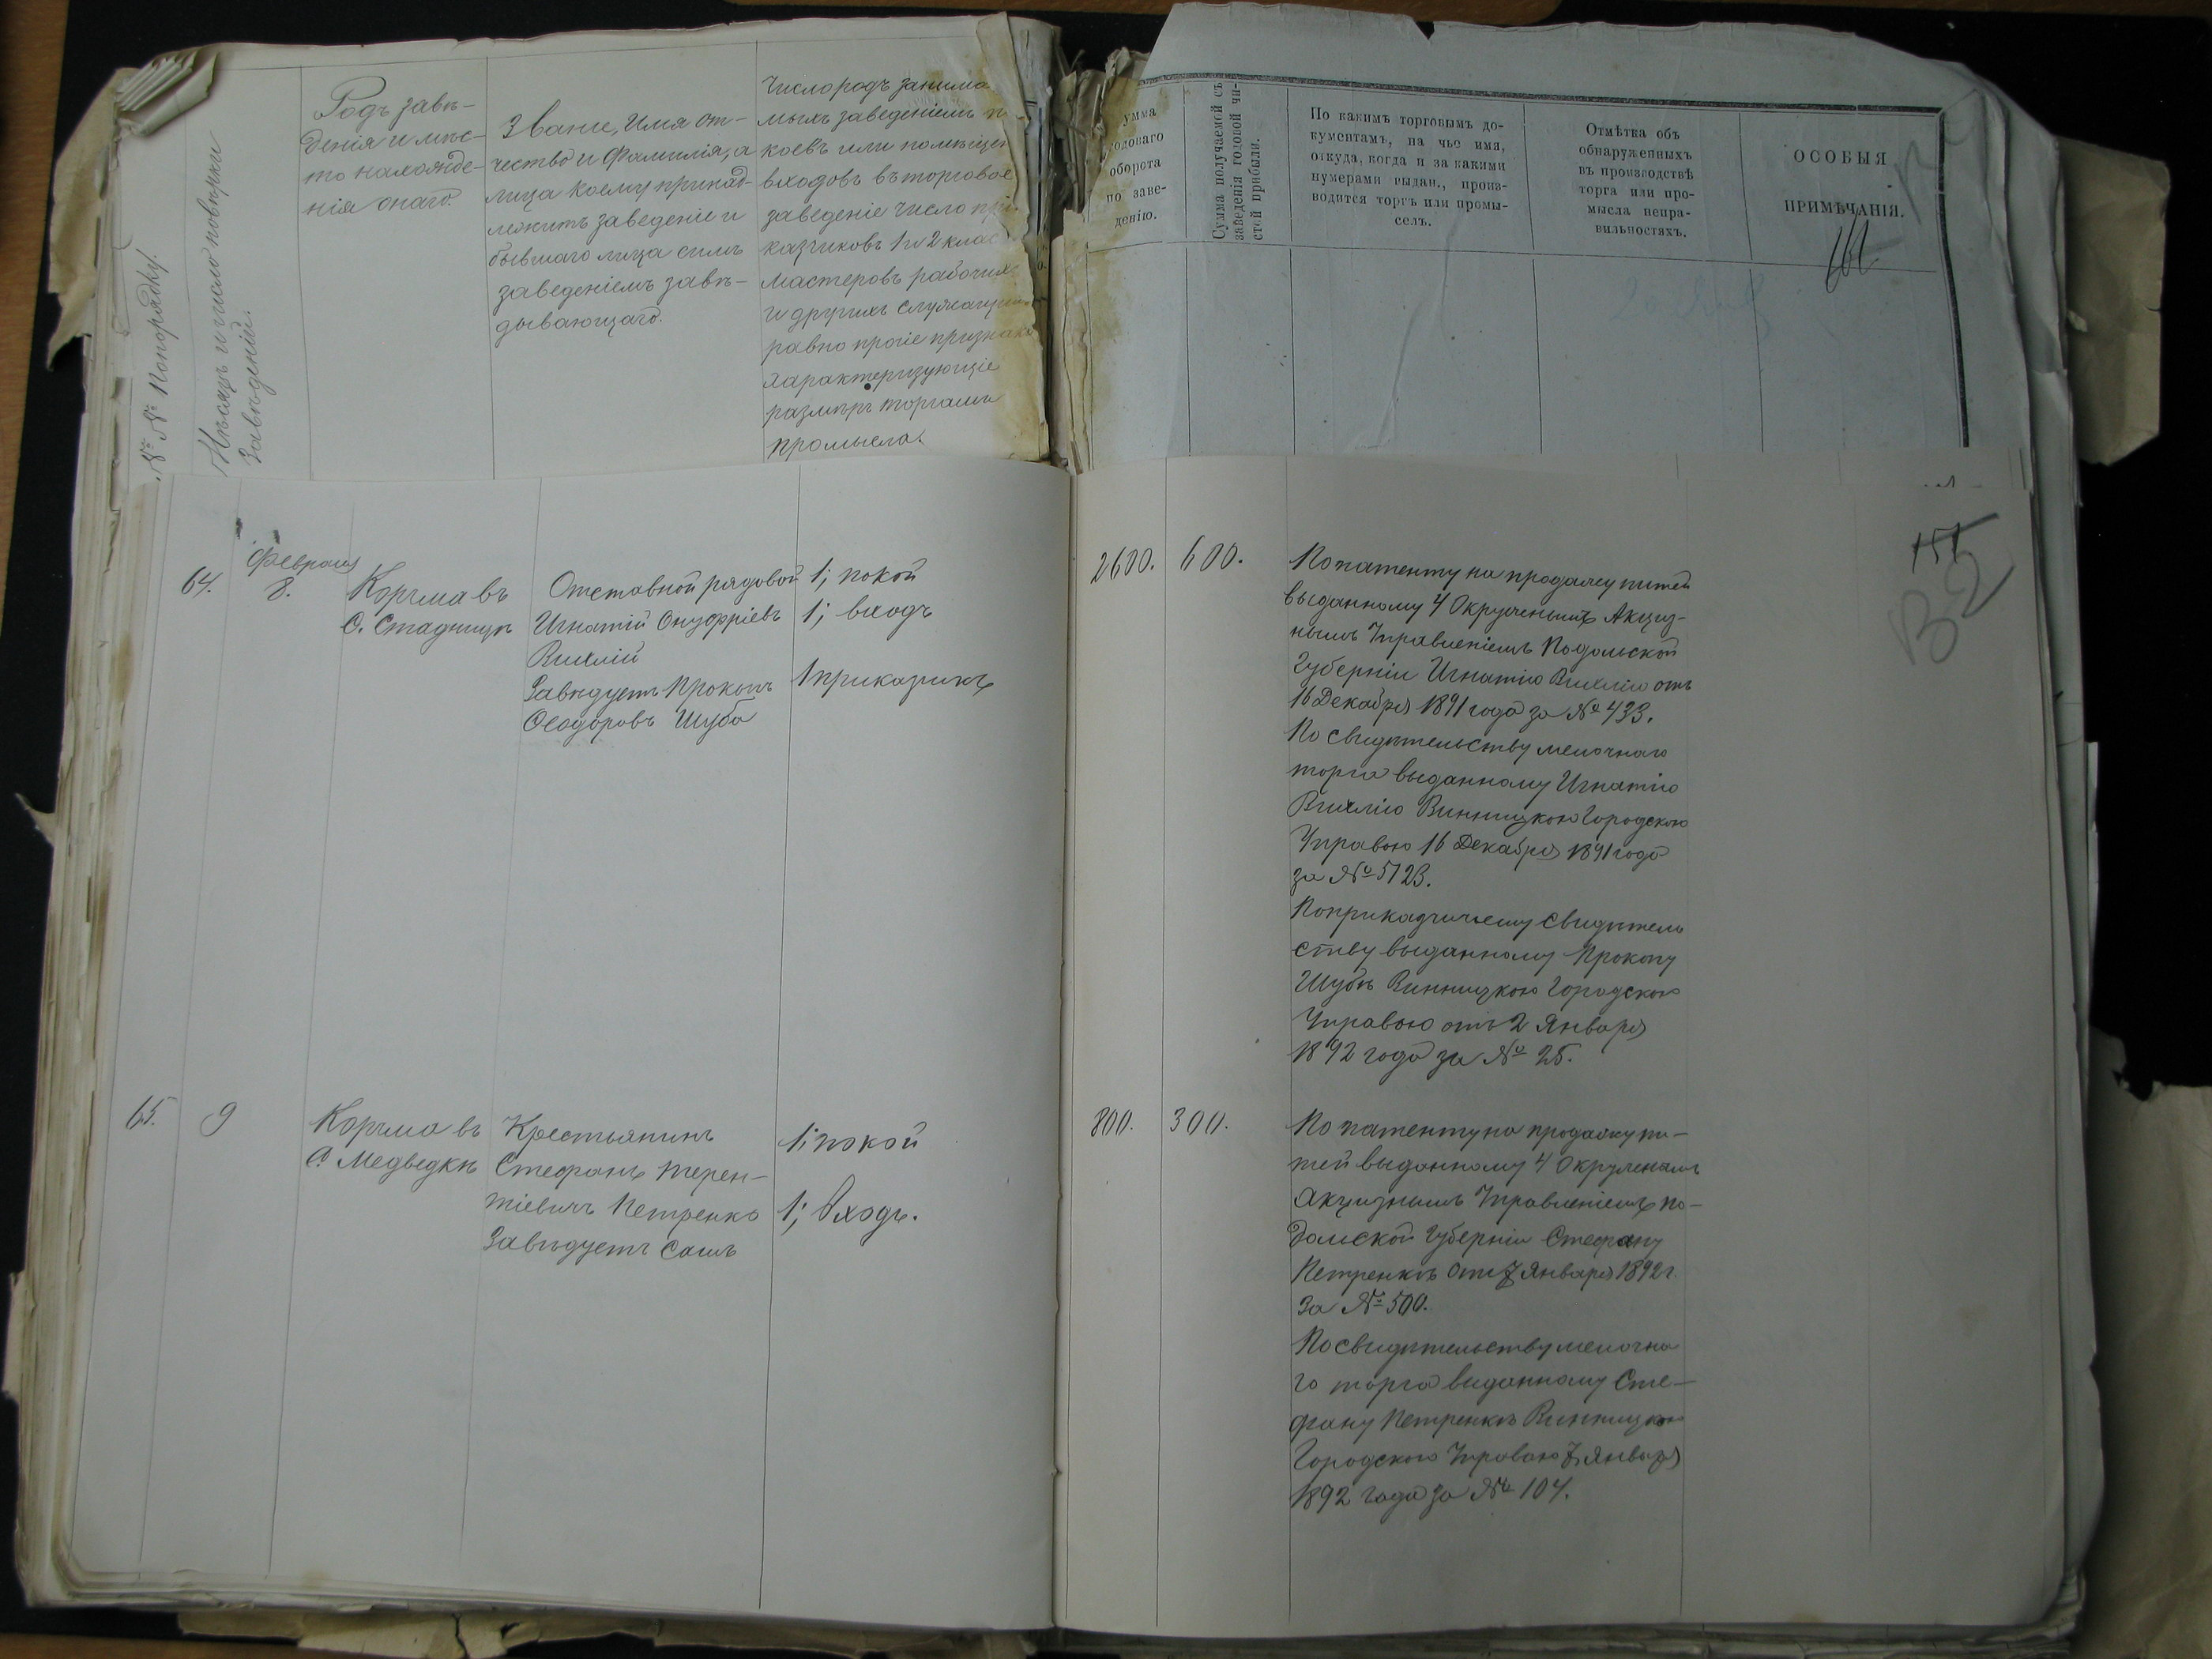 № № По порядку.
Мѣсяцъ и число повѣрки
Заведеній.
Родъ заве-
денія и мѣс-
то нахожде-
нія онаго.
Званіе, Имя от-
чество и Фамилія, а
лица коему принад-
лежитъ заведеніе и
бывшаго лица симъ
заведеніемъ завѣ-
дывающаго.
Число родъ занима
мыхъ заведеніемъ п
коевъ или помѣщен
входовъ въ торговое
заведеніе число при
казчиковъ 1 и 2 клас
мастеровъ рабочихъ
и другихъ служащихъ
равно прочіе признаки
характеризующіе
размѣръ торга или
промысла.
умма
годоваго
оборота
по заве-
денію.
Сумма получаемой съ
заведенія годовой чи-
стой прибыли.
По какимъ торговымъ до-
кументамъ, на чье имя,
откуда, когда и за какими
нумерами выдан., произ-
водится торгъ или промы-
селъ.
Отмѣтка объ
обнаруженныхъ
въ производствѣ
торга или про-
мысла непра-
вильностяхъ.
ОСОБЫЯ
ПРИМѢЧАНІЯ.
64.
Февраля
8.
Корчма въ
С. Стадницѣ
Отставной рядовой
Игнатій Онуфріевъ
Вихлій
Завѣдуетъ Прокопъ
Ѳеодоровъ Шуба
1; покой
1; входъ
1 приказчикъ
2600.
600.
По патенту на продажу питей
выданному 4 Окружнымъ Акциз-
нымъ Управленіемъ Подольской
Губерніи Игнатію Вихлію отъ
16 Декабря 1891 года за № 433.
По свидѣтельству мелочнаго
торга выданному Игнатію
Вихлію Винницкою Городскою
Управою 16 Декабря 1891 года
за № 5123.
По приказчичьему свидѣтель
ству выданному Прокопу
Шубѣ Винницкою Городскою
Управою отъ 2 Января
1892 года за № 25.
151
В2
65.
9
Корчма въ
С. Медведкѣ
Крестьянинъ
Стефанъ Терен-
тіевичъ Петренко
Завѣдуетъ Самъ
1; покой
1; Входъ.
800.
300.
По патенту на продажу пи-
тей выданному 4 Окружнымъ
Акцизнымъ Управленіемъ По-
дольской Губерніи Стефану
Петренкѣ отъ 7 Января 1892 г.
За № 500.
По свидѣтельству мелочна
го торга выданному Сте-
фану Петренкѣ Винницкою
Городскою Управою 7 Января
1892 года за № 104.